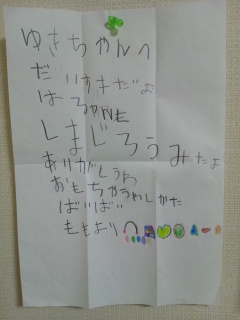 ゆきちゃんへ
だいすきだよ
はるかんも
しまじろうみたよ
ありがとうね
おもちゃうれしかた
ばいばい
ももより